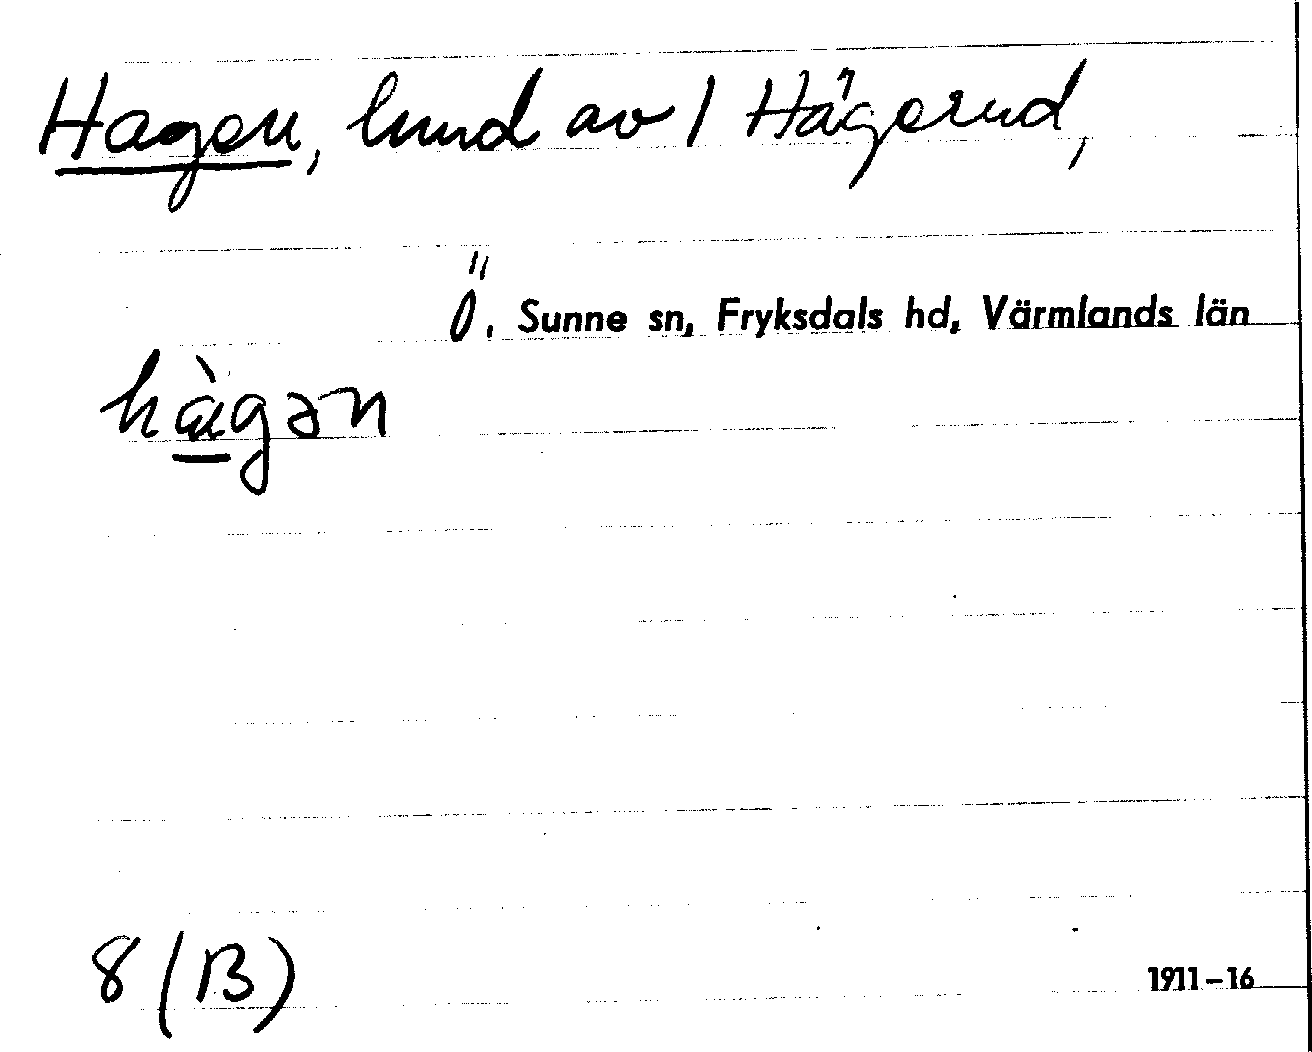 Hagen, lund av 1 Hägerud,
Ö. Sunne sn, Fryksdals hd, Värmlands län
hàgən
8 (B)
1911–16